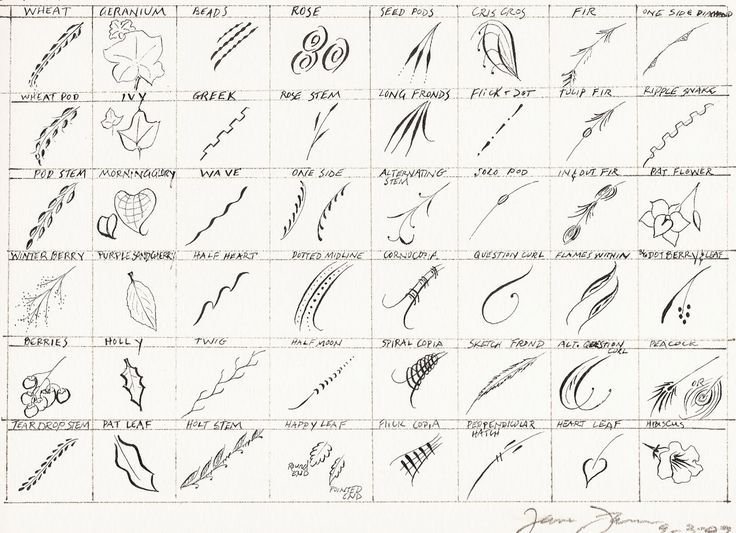 WHEAT
GERANIUM
BEADS
ROSE
SEED PODS
CRIS CROS
FIR
ONE SIDE DIAMOND
WHEAT POD
IVY
GREEK
ROSE STEM
LONG FRONDS
FLICK + DOT
TULIP FIR
RIPPLE SNAKE
POD STEM
MORNING GLORY
WAVE
ONE SIDE
ALTERNATING
STEM
SOLO POD
IN + OUT FIR
PAT FLOWER
WINTER BERRY
PURPLE SANDCHERRY
HALF HEART
DOTTED MIDLINE
QUESTION CURL
FLAMES WITHIN
DOT BERRY & LEAF
BERRIES
HOLLY
TWIG
HALF MOON
SPIRAL COPIA
SKETCH FROND
ALT. QUESTION
CURL
PEACOCK
OR
TEARDROP STEM
PAT LEAF
HOLT STEM
HAPPY LEAF
ROUND
END
POINTED
END
FLICK COPIA
PERPENDICULAR
HATCH
HEART LEAF
HIBISCUS